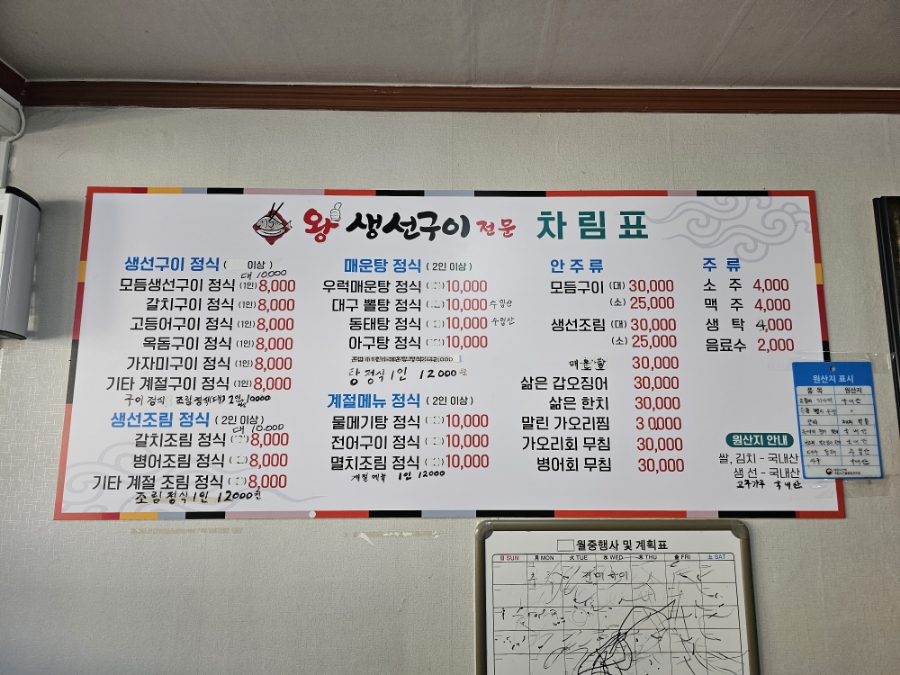 왕 생선구이 전문 차림표
생선구이 정식 ( 이상 )
대 10000
모듬생선구이 정식 (1인) 8,000
갈치구이 정식 (1인) 8,000
고등어구이 정식 (1인) 8,000
옥돔구이 정식 (1인) 8,000
가자미구이 정식 (1인) 8,000
기타 계절구이 정식 (1인) 8,000
구이 정식 조림정식(대) 10000
생선조림 정식 ( 2인 이상 )
대 10.000
갈치조림 정식 8,000
병어조림 정식 8,000
기타 계절 조림 정식 8,000
조림정식 1인 12000원
매운탕 정식 ( 2인 이상 )
우럭매운탕 정식 10,000
대구 뽈탕 정식 10,000 수입산
동태탕 정식 10,000 수입산
아구탕 정식 10,000
탕정식 1인 12000원
계절메뉴 정식 ( 2인 이상 )
물메기탕 정식 10,000
전어구이 정식 10,000
멸치조림 정식 10,000
계절메뉴 1인 12000
안 주 류
모듬구이 (대) 30,000
(소) 25,000
생선조림 (대) 30,000
(소) 25,000
매운탕 30,000
삶은 갑오징어 30,000
삶은 한치 30,000
말린 가오리찜 30,000
가오리회 무침 30,000
병어회 무침 30,000
주 류
소 주 4,000
맥 주 4,000
생 탁 4,000
음료수 2,000
원산지 안내
쌀, 김치 - 국내산
생 선 - 국내산
고추가루 국내산
원산지 표시
품 목 원산지
월중행사 및 계획표
日 SUN 月 MON 火 TUE 水 WED 木 THU 金 FRI 土 SAT